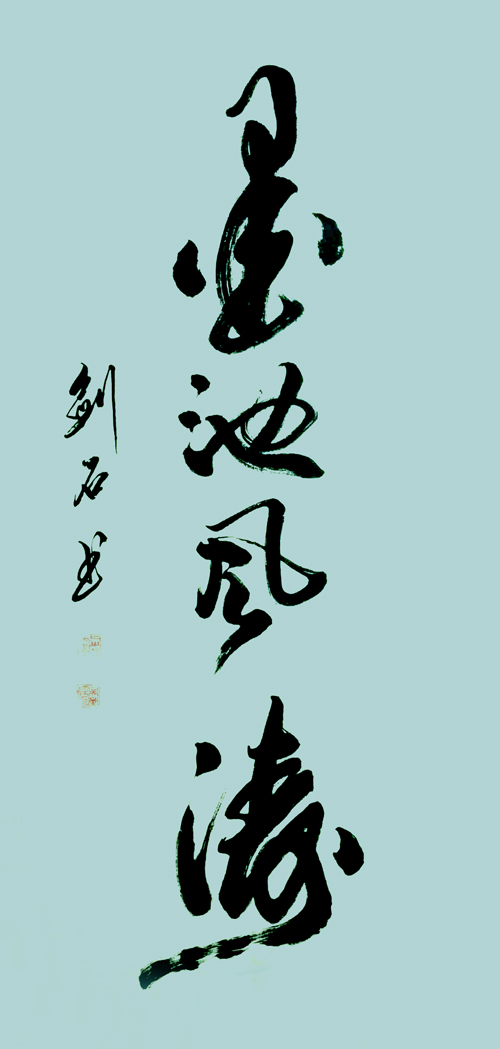 墨池风涛
剑石书